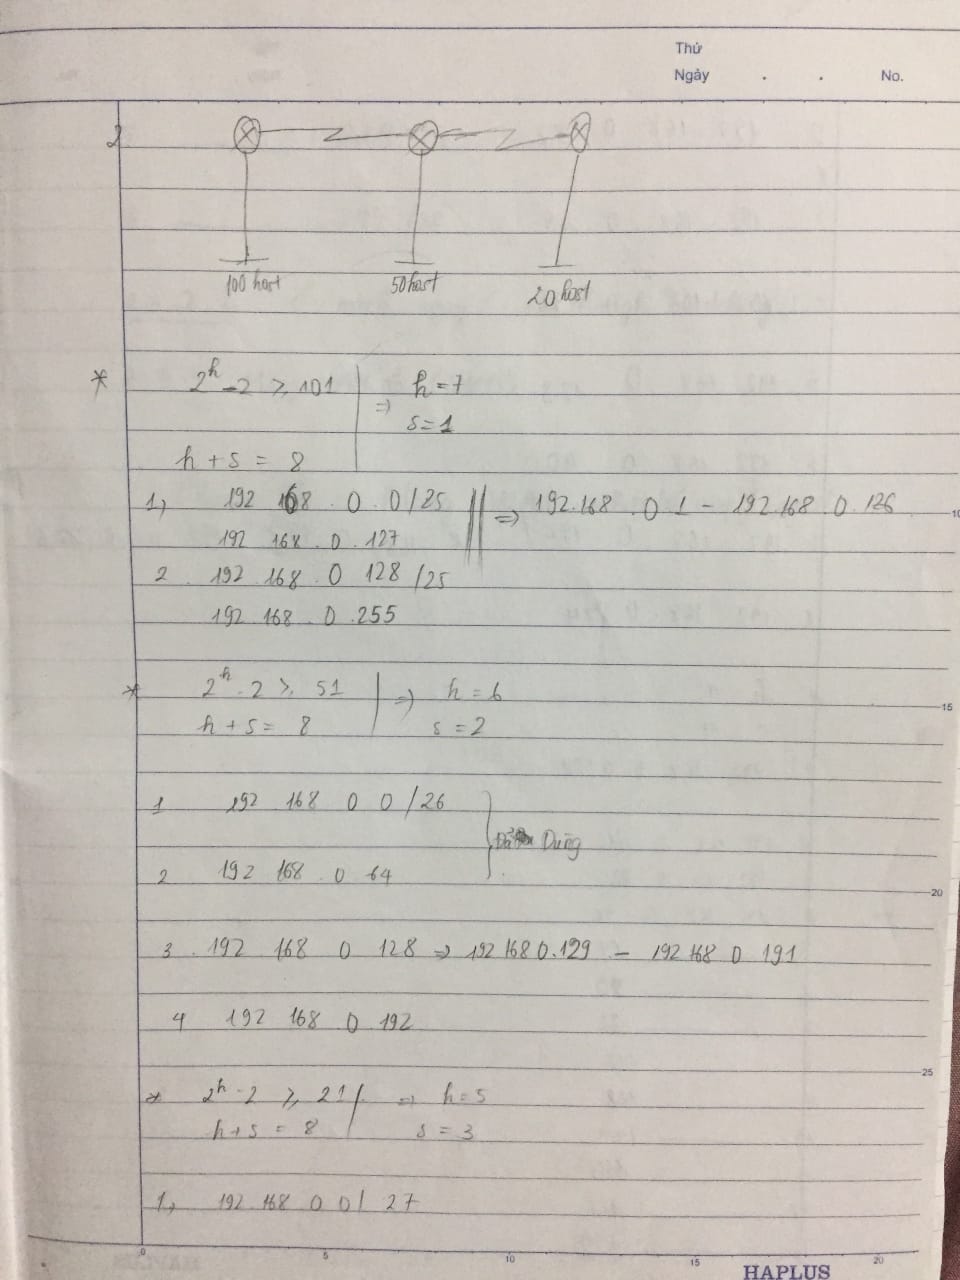 Thứ
Ngày . . No.
2
100 host 50 host 20 host
* 2^h - 2 ≥ 101 => h = 7
s = 1
h + s = 8
1, 192 168 . 0 . 0/25 => 192.168 . 0 1 - 192.168 . 0 . 126
10
192 168 . 0 . 127
2 192 168 0 128 /25
192 168 . 0 . 255
* 2^h - 2 ≥ 51 => h = 6
15
h + s = 8 s = 2
1 192 168 0 0 /26
Đã Dùng
2 192 168 0 64
20
3 . 192 168 0 128 => 192 168 0.129 - 192 168 0 191
4 192 168 0 192
25
* 2^h - 2 ≥ 21 => h = 5
h + s = 8 s = 3
1, 192 168 0 0 / 27
0 5 10 15 20
HAPLUS